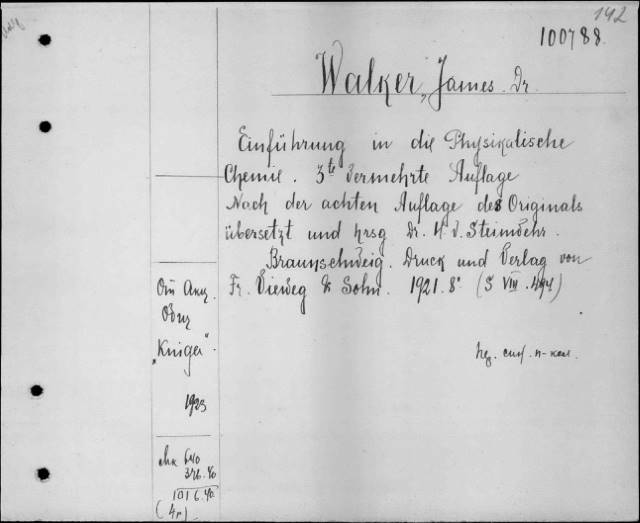 142
100788.
Walker, James. Dr.
Einführung in die Physikalische
Chemie. 3te Vermehrte Auflage
Nach der achten Auflage des Originals
übersetzt und hrsg Dr. H. v. Steinwehr.
Braunschweig. Druck und Verlag von
Fr. Vieweg & Sohn. 1921. 8°. (5 VIII. 494)
"Kniga".
1923
640
376.40
1016.40